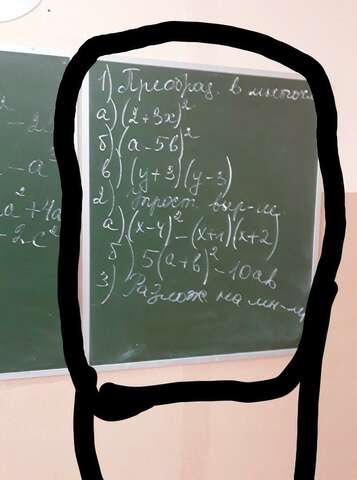 1) Преобраз. в многоч
а) (2+3x)²
б) (a-5b)²
в) (y+3)(y-3)
2) Упрост. выр-ия
а) (x-4)² - (x+1)(x+2)
б) 5(a+b)² - 10ab
3) Разлож на мн-ли
- a²
a² + 4a
- 2c²